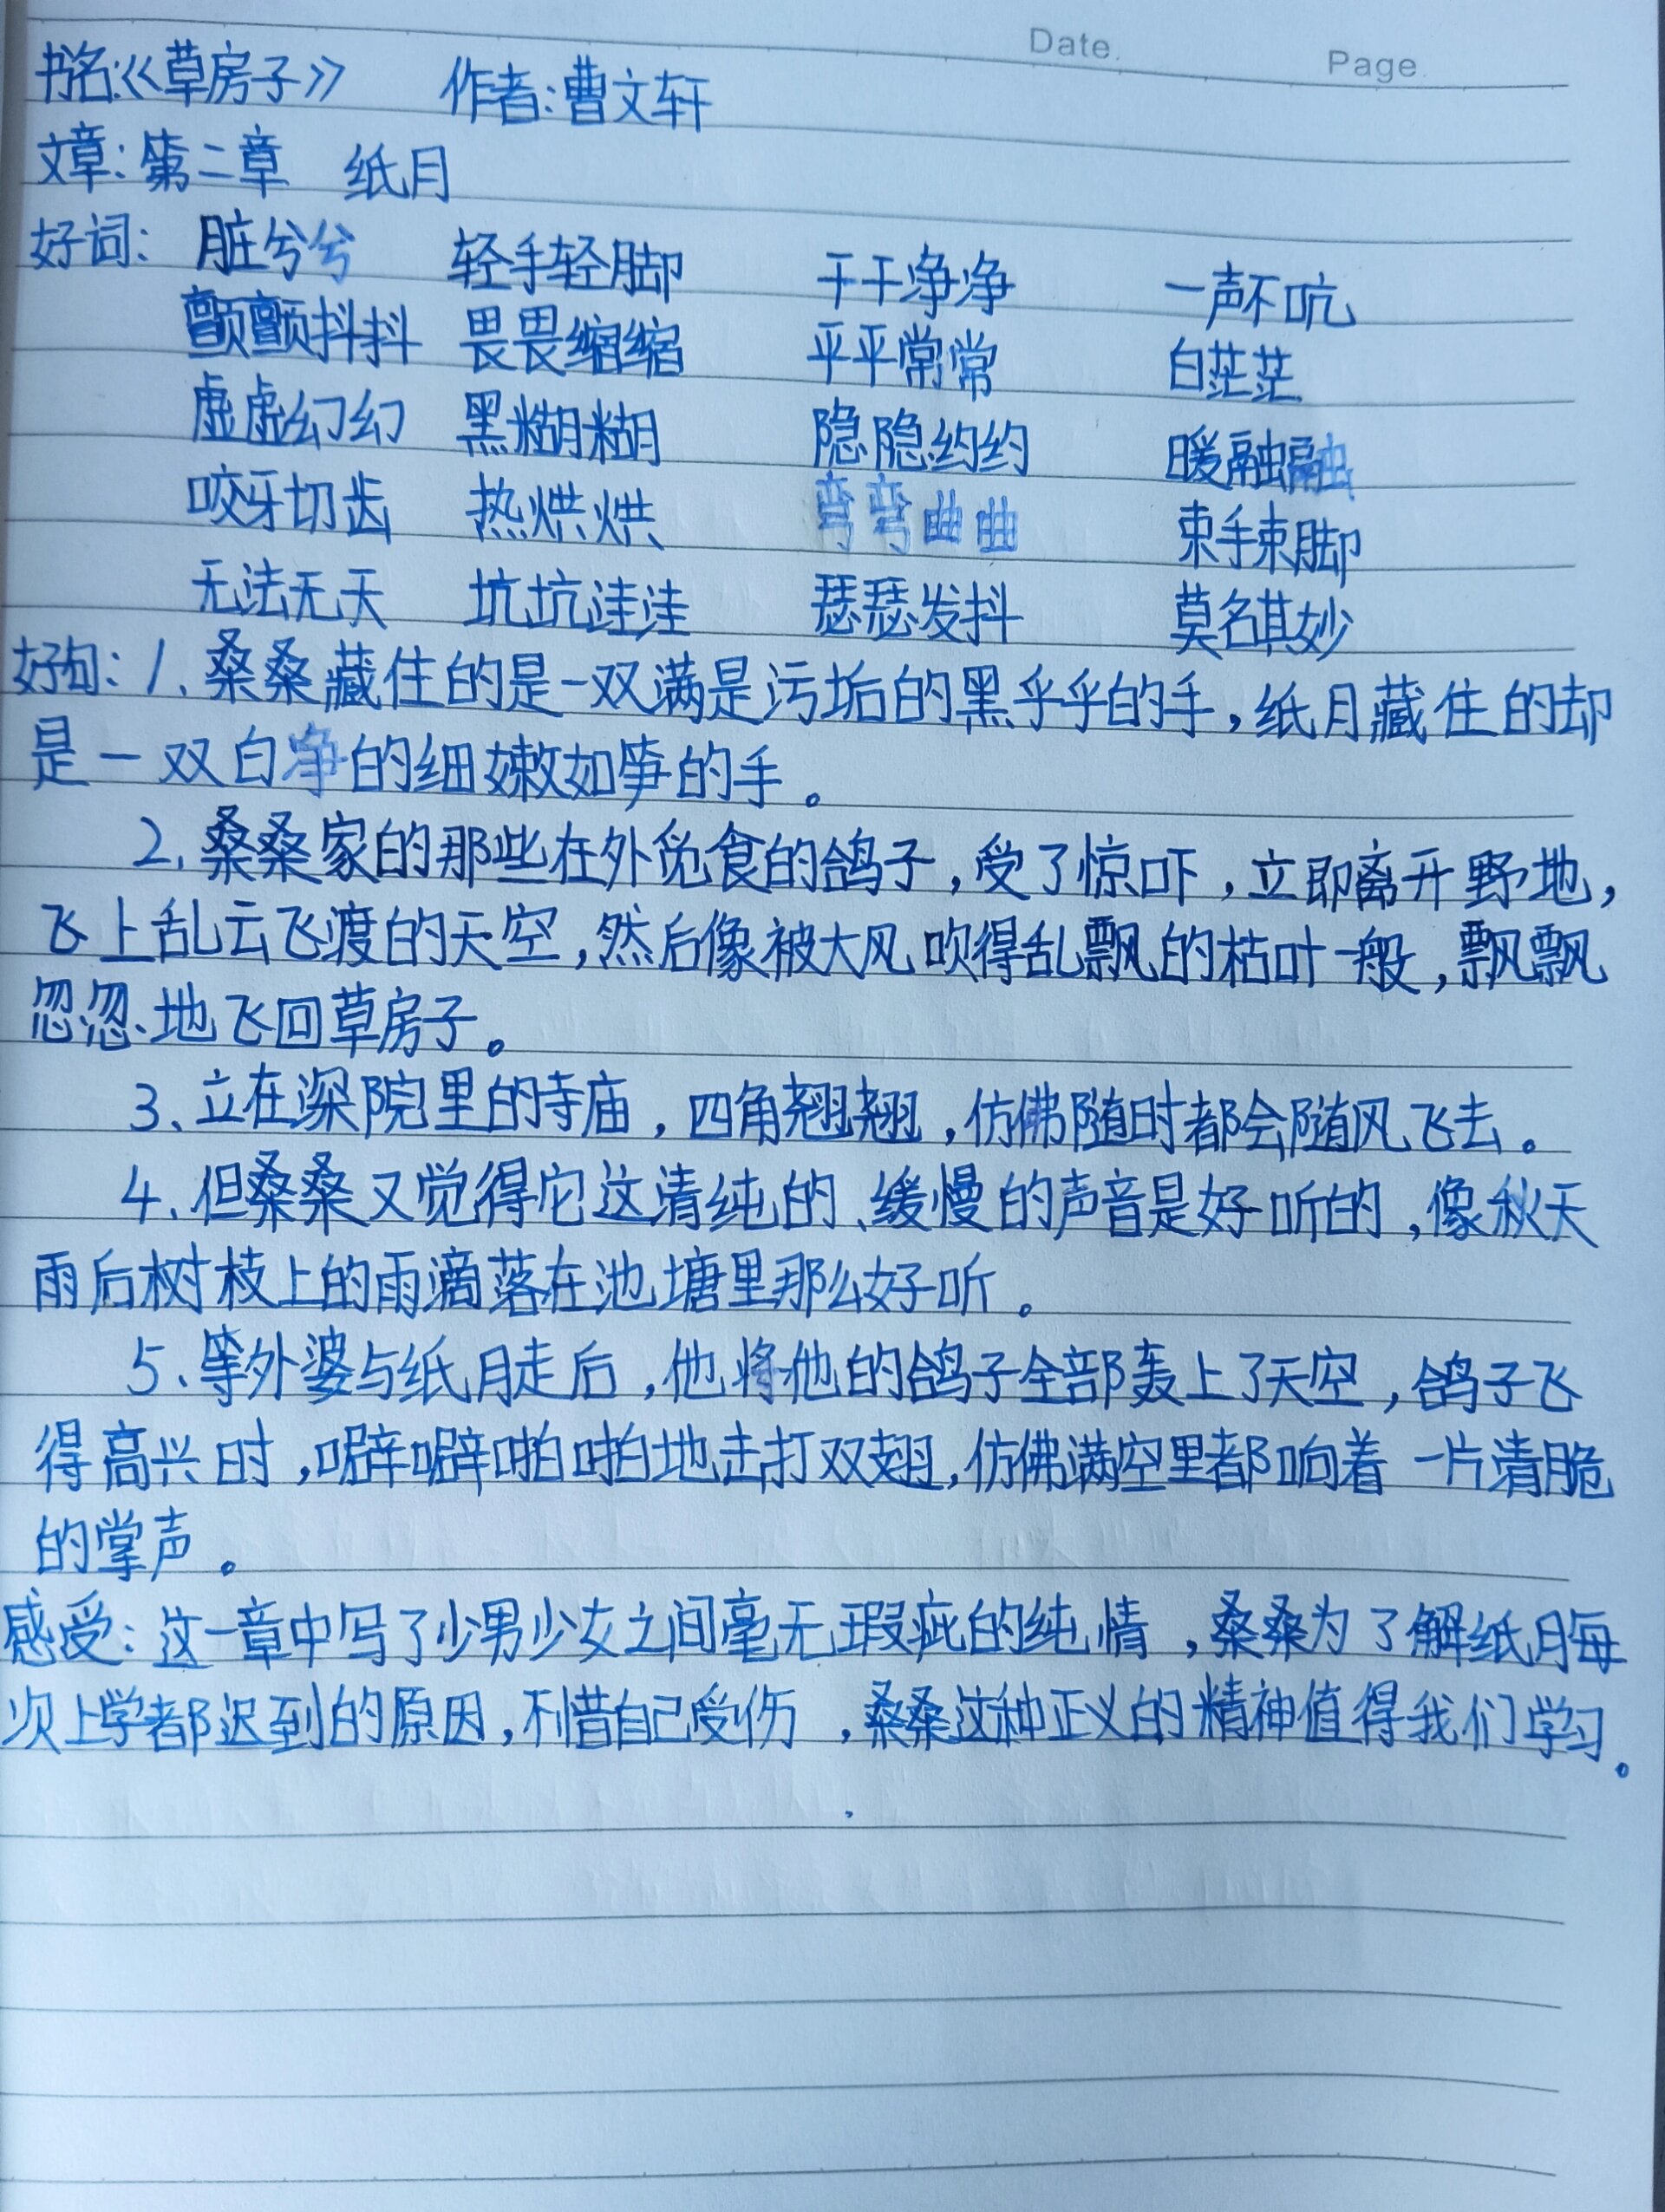 Date.
Page.
书名:《草房子》 作者:曹文轩
文章:第二章 纸月
好词: 脏兮兮 轻手轻脚 干干净净 一声不吭
颤颤抖抖 畏畏缩缩 平平常常 白茫茫
虚虚幻幻 黑糊糊 隐隐约约 暖融融
咬牙切齿 热烘烘 弯弯曲曲 束手束脚
无法无天 坑坑洼洼 瑟瑟发抖 莫名其妙
好句:1、桑桑藏住的是一双满是污垢的黑乎乎的手,纸月藏住的却
是一双白净的细嫩如笋的手。
2、桑桑家的那些在外觅食的鸽子,受了惊吓,立即离开野地,
飞上乱云飞渡的天空,然后像被大风吹得乱飘的枯叶一般,飘飘
忽忽地飞回草房子。
3、立在深院里的寺庙,四角翘翘,仿佛随时都会随风飞去。
4、但桑桑又觉得它这清纯的、缓慢的声音是好听的,像秋天
雨后树枝上的雨滴落在池塘里那么好听。
5、等外婆与纸月走后,他将他的鸽子全部轰上了天空,鸽子飞
得高兴时,噼噼啪啪地击打双翅,仿佛满空里都响着一片清脆
的掌声。
感受:这一章中写了少男少女之间毫无瑕疵的纯情,桑桑为了解纸月每
次上学都迟到的原因,不惜自己受伤,桑桑这种正义的精神值得我们学习。